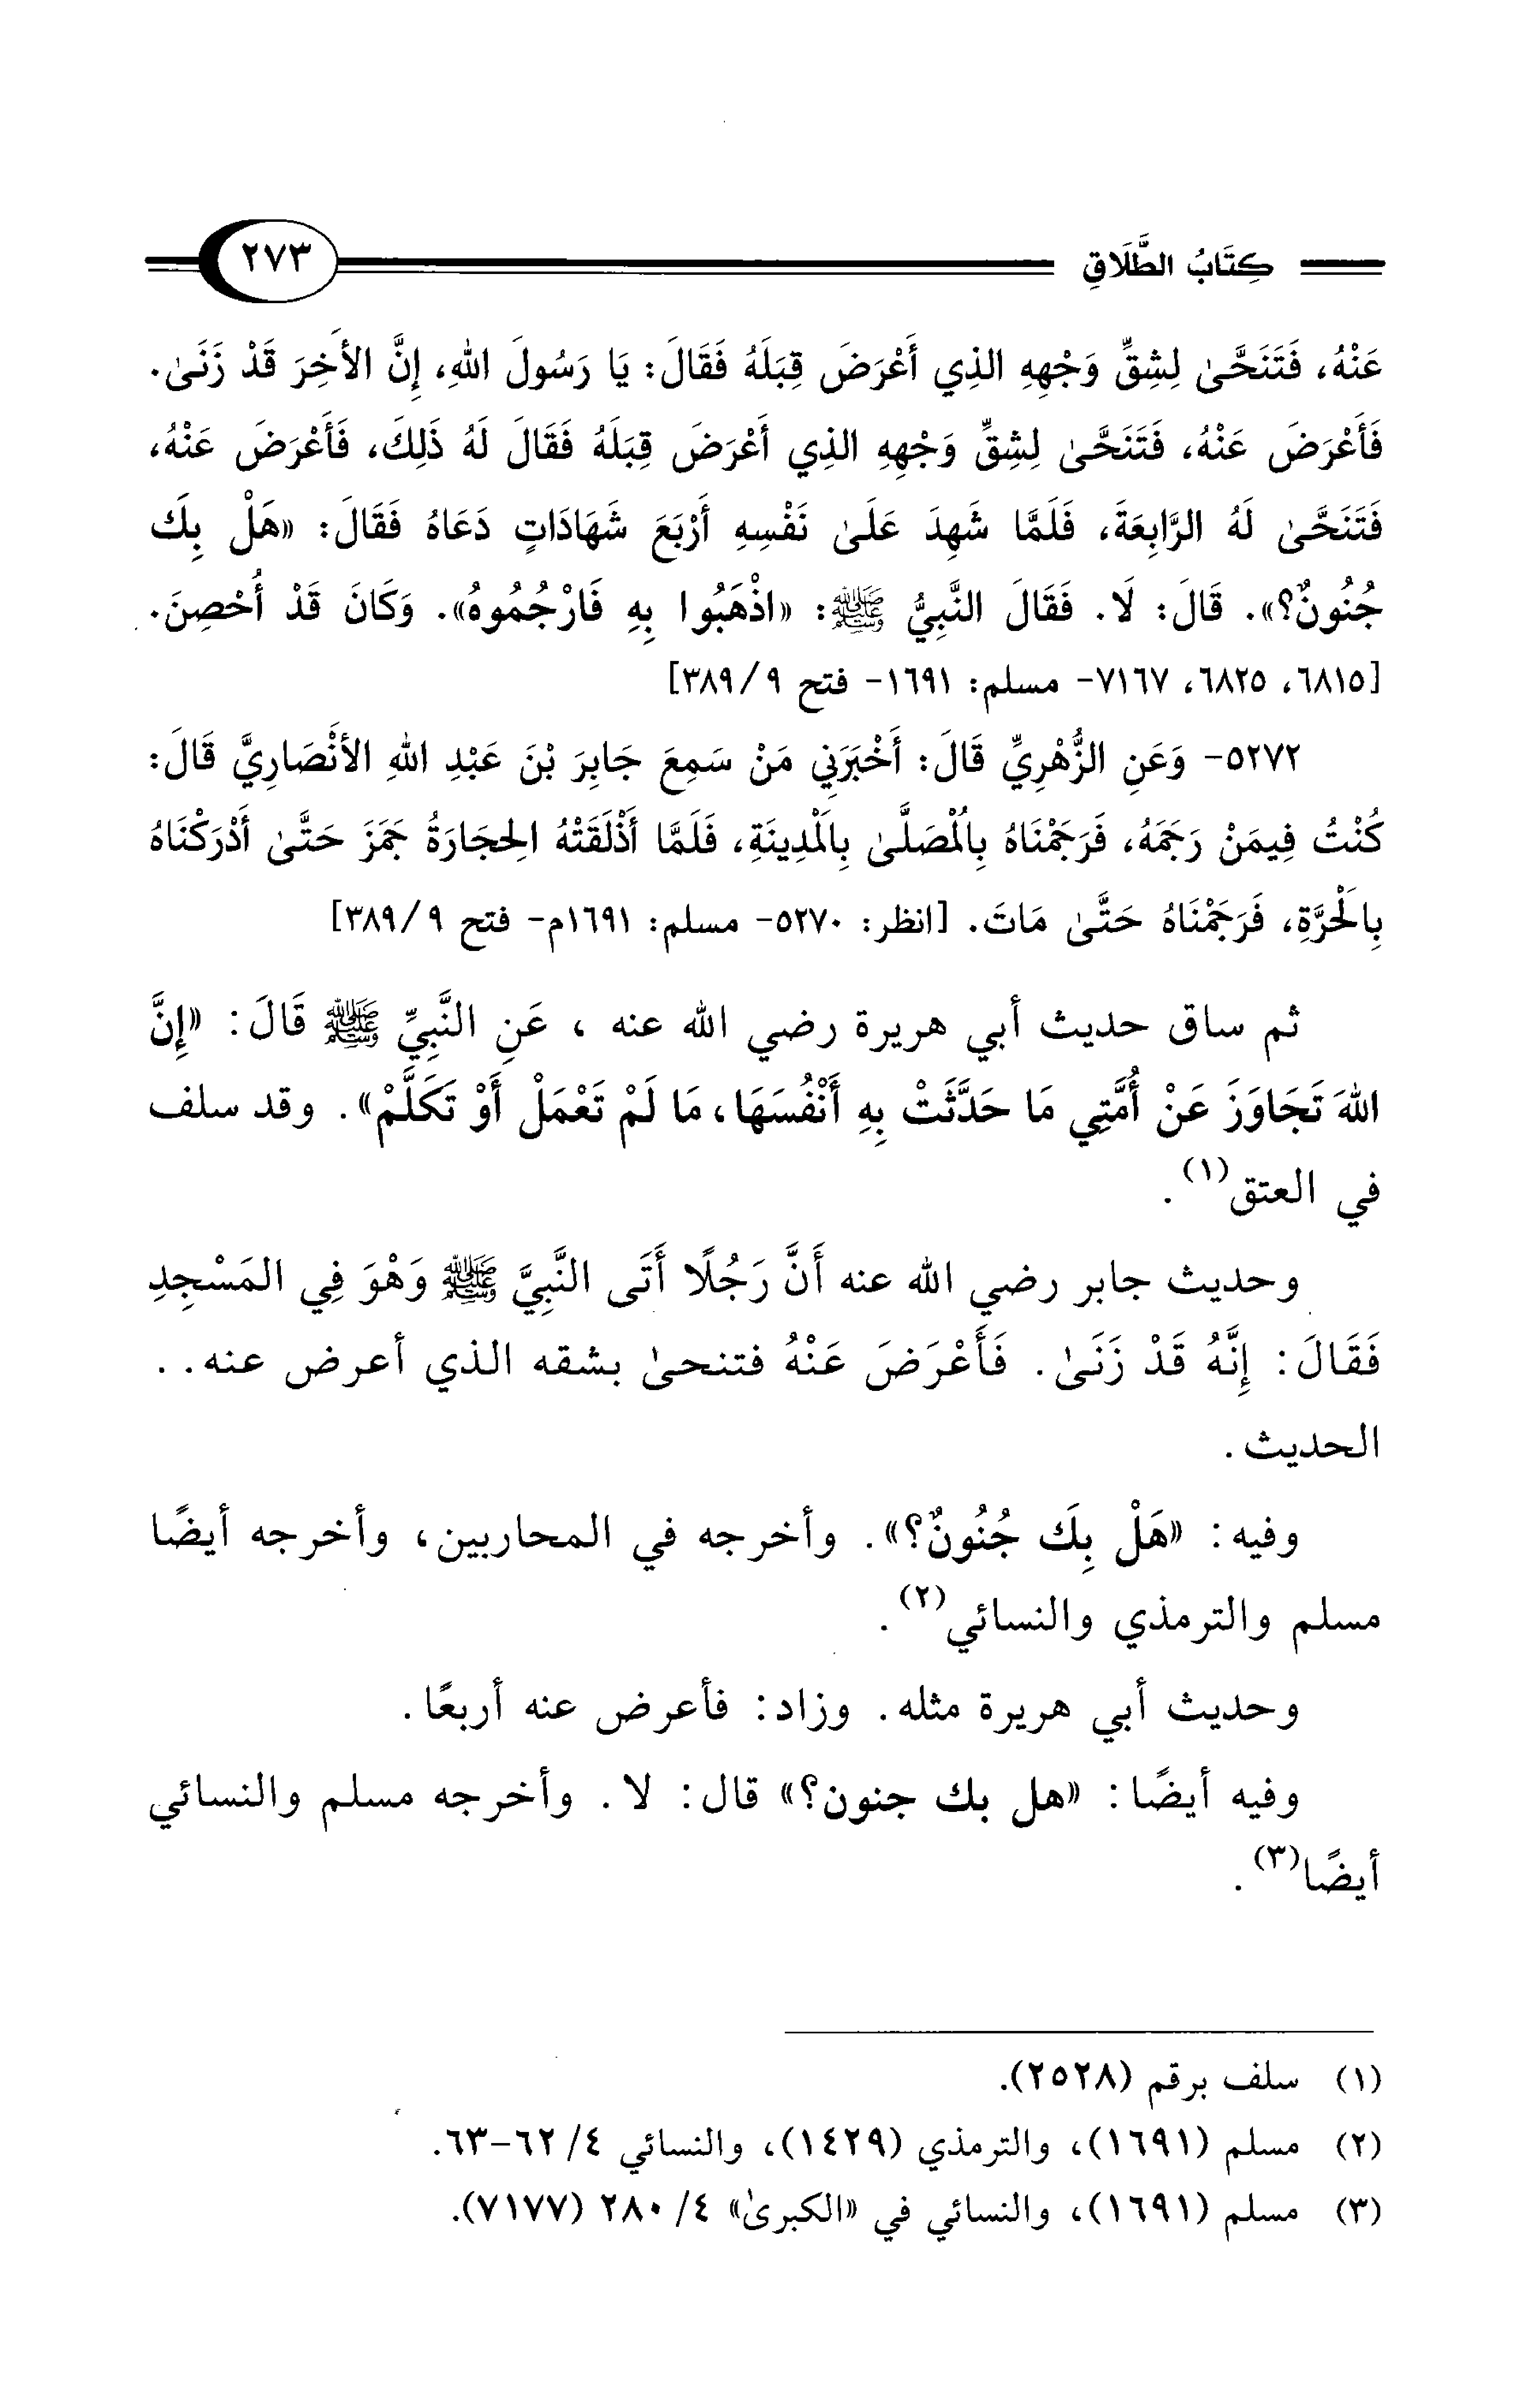 كِتَابُ الطَّلَاقِ ٢٧٣
عَنْهُ، فَتَنَحَّىٰ لِشِقِّ وَجْهِهِ الذِي أَعْرَضَ قِبَلَهُ فَقَالَ: يَا رَسُولَ اللهِ، إِنَّ الأَخِرَ قَدْ زَنَىٰ.
فَأَعْرَضَ عَنْهُ، فَتَنَحَّىٰ لِشِقِّ وَجْهِهِ الذِي أَعْرَضَ قِبَلَهُ فَقَالَ لَهُ ذَلِكَ، فَأَعْرَضَ عَنْهُ،
فَتَنَحَّىٰ لَهُ الرَّابِعَةَ، فَلَمَّا شَهِدَ عَلَىٰ نَفْسِهِ أَرْبَعَ شَهَادَاتٍ دَعَاهُ فَقَالَ: «هَلْ بِكَ
جُنُونٌ؟». قَالَ: لَا. فَقَالَ النَّبِيُّ ﷺ: «اذْهَبُوا بِهِ فَارْجُمُوهُ». وَكَانَ قَدْ أُحْصِنَ.
[٦٨١٥، ٦٨٢٥، ٧١٦٧- مسلم: ١٦٩١- فتح ٩/ ٣٨٩]
٥٢٧٢- وَعَنِ الزُّهْرِيِّ قَالَ: أَخْبَرَنِي مَنْ سَمِعَ جَابِرَ بْنَ عَبْدِ اللهِ الأَنْصَارِيَّ قَالَ:
كُنْتُ فِيمَنْ رَجَمَهُ، فَرَجَمْنَاهُ بِالْمُصَلَّىٰ بِالْمَدِينَةِ، فَلَمَّا أَذْلَقَتْهُ الحِجَارَةُ جَمَزَ حَتَّىٰ أَدْرَكْنَاهُ
بِالْحَرَّةِ، فَرَجَمْنَاهُ حَتَّىٰ مَاتَ. [انظر: ٥٢٧٠- مسلم: ١٦٩١م- فتح ٩/ ٣٨٩]
ثم ساق حديث أبي هريرة رضي الله عنه ، عَنِ النَّبِيِّ ﷺ قَالَ: «إِنَّ
اللهَ تَجَاوَزَ عَنْ أُمَّتِي مَا حَدَّثَتْ بِهِ أَنْفُسَهَا، مَا لَمْ تَعْمَلْ أَوْ تَكَلَّمْ». وقد سلف
في العتق(١).
وحديث جابر رضي الله عنه أَنَّ رَجُلًا أَتَى النَّبِيَّ ﷺ وَهْوَ فِي المَسْجِدِ
فَقَالَ: إِنَّهُ قَدْ زَنَىٰ. فَأَعْرَضَ عَنْهُ فتنحىٰ بشقه الذي أعرض عنه..
الحديث.
وفيه: «هَلْ بِكَ جُنُونٌ؟». وأخرجه في المحاربين، وأخرجه أيضًا
مسلم والترمذي والنسائي(٢).
وحديث أبي هريرة مثله. وزاد: فأعرض عنه أربعًا.
وفيه أيضًا: «هل بك جنون؟» قال: لا. وأخرجه مسلم والنسائي
أيضًا(٣).
(١) سلف برقم (٢٥٢٨).
(٢) مسلم (١٦٩١)، والترمذي (١٤٢٩)، والنسائي ٤/ ٦٢-٦٣.
(٣) مسلم (١٦٩١)، والنسائي في «الكبرىٰ» ٤/ ٢٨٠ (٧١٧٧).